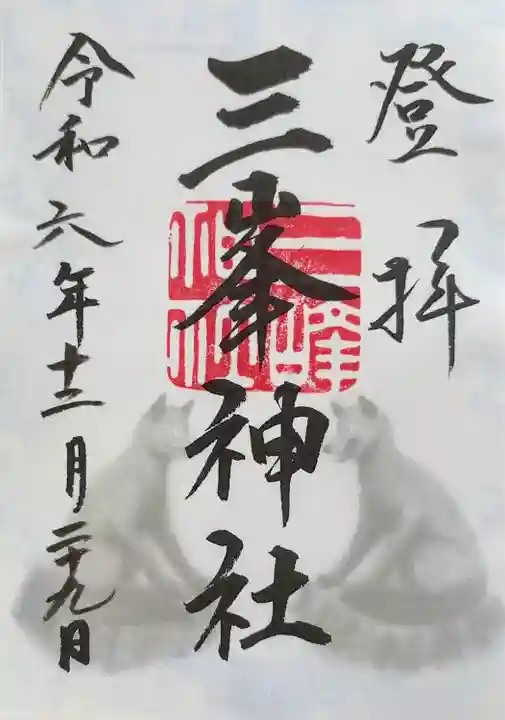 登拝
三峯神社
三峰神社
令和六年十二月二十九日